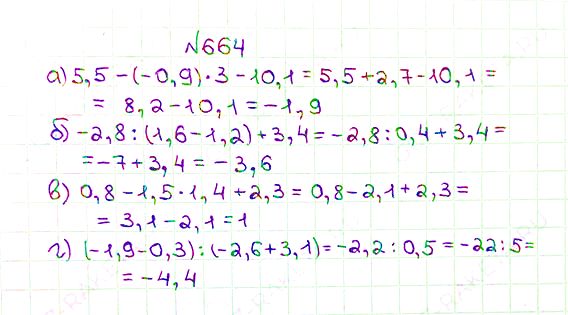 №664
а) 5,5 - (-0,9) · 3 - 10,1 = 5,5 + 2,7 - 10,1 =
= 8,2 - 10,1 = -1,9
б) -2,8 : (1,6 - 1,2) + 3,4 = -2,8 : 0,4 + 3,4 =
= -7 + 3,4 = -3,6
в) 0,8 - 1,5 · 1,4 + 2,3 = 0,8 - 2,1 + 2,3 =
= 3,1 - 2,1 = 1
г) (-1,9 - 0,3) : (-2,6 + 3,1) = -2,2 : 0,5 = -22 : 5 =
= -4,4